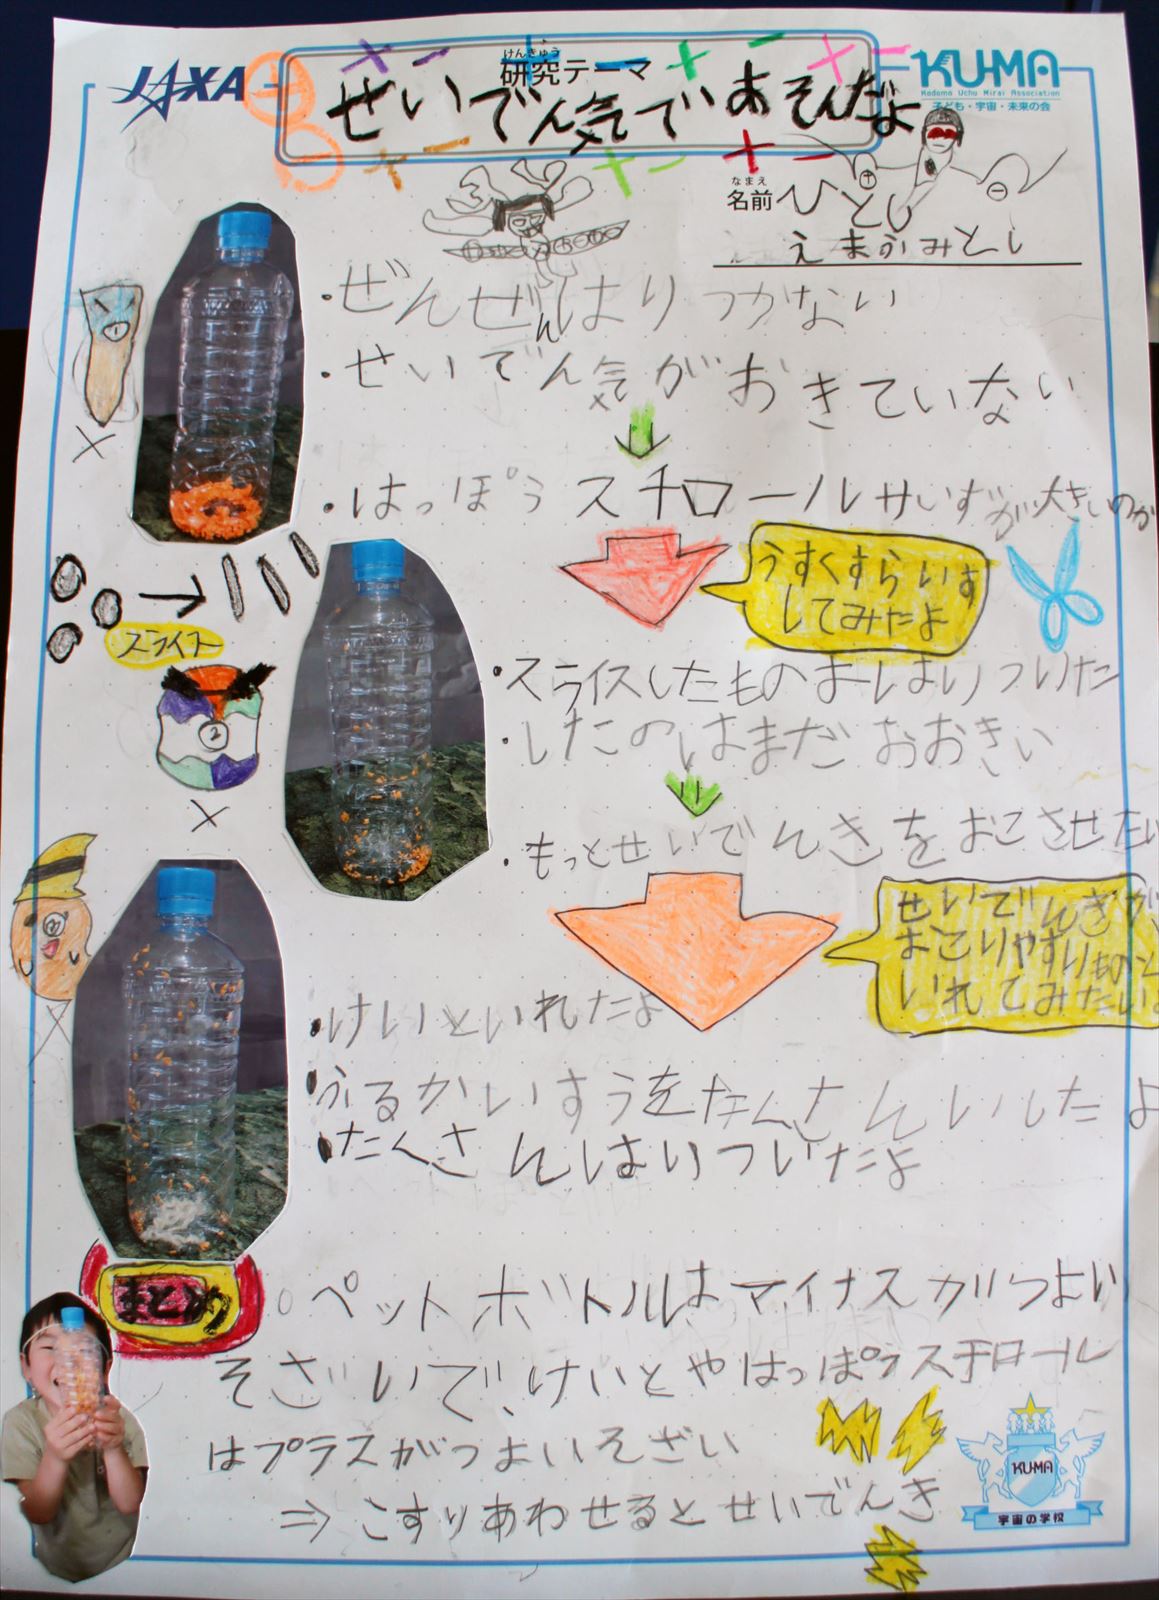 JAXA
けんきゅう
研究テーマ
せいでん気であそんだよ
KU-MA
Kodomo Uchu Mirai Association
子ども・宇宙・未来の会
なまえ
名前
ひとし
・ぜんぜんはりつかない
・せいでん気がおきていない
・はっぽうスチロールサいずが大きいのか
うすくすらいす
してみたよ
スライス
①
・スライスしたものおはりついた
・したのはまだおおきい
②
・もっとせいでんきをおこさせたい
せいでんきが
おこりやすいものを
いれてみたいよ
・けいといれたよ
・ふるかいすうをたくさんいしたよ
・たくさんはりついたよ
まとめ
○ペットボトルはマイナスがつよい
そざいで、けいとやはっぽうスチロール
はプラスがつよいそざい
⇒こすりあわせるとせいでんき
KU-MA
宇宙の学校